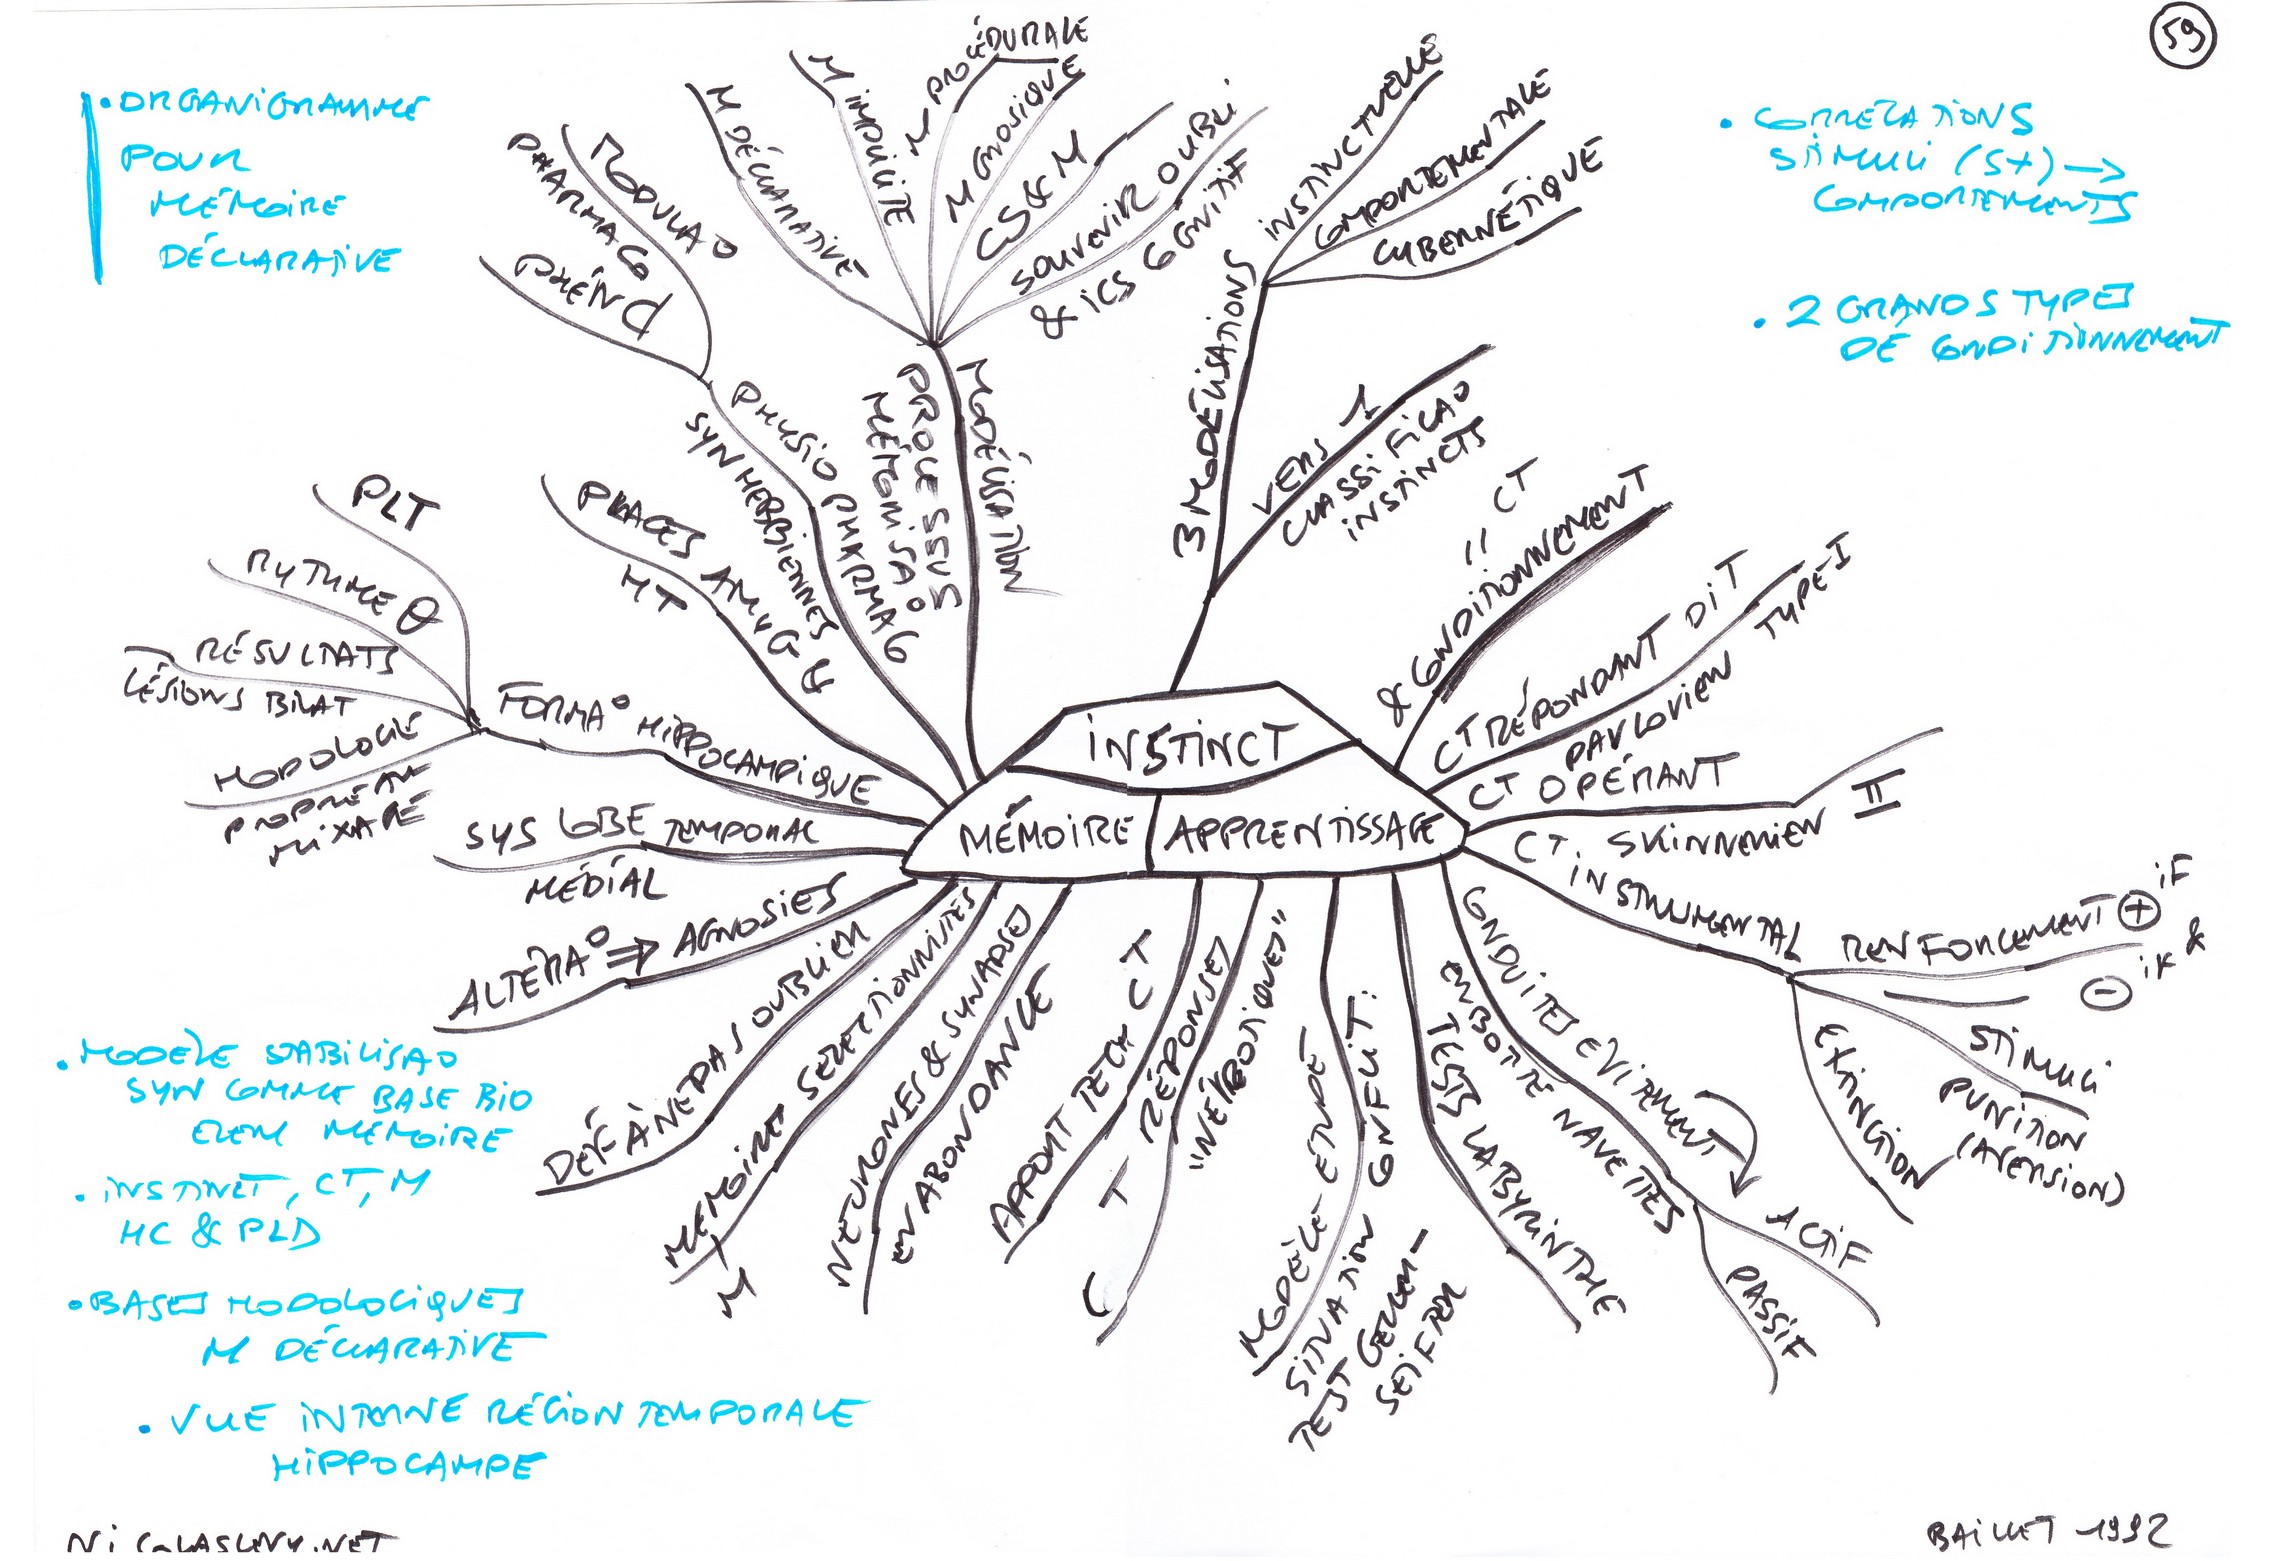 59
• ORGANIGRAMME
POUR
MÉMOIRE
DÉCLARATIVE
• CORRÉLATIONS
STIMULI (S+) →
COMPORTEMENTS
• 2 GRANDS TYPES
DE CONDITIONNEMENT
INSTINCT
MÉMOIRE
APPRENTISSAGE
3 MODÉLISATIONS
INSTINCTUELLE
COMPORTEMENTALE
CYBERNÉTIQUE
VERS 1
CLASSIFICA°
INSTINCTS
// CT
& CONDITIONNEMENT
CT RÉPONDANT DIT
PAVLOVIEN TYPE-I
CT OPÉRANT
SKINNERIEN II
CT
INSTRUMENTAL
RENFORCEMENT ⊕ iF
⊖
STIMULI
PUNITION
(AVERSION)
EXTINCTION
CONDUITES ÉVITEMENT
EN BOITE NAVETTES
ACTIF
PASSIF
TESTS LABYRINTHE
MODÈLE ETUDE
SITUATION CONFLIT:
TEST GELLER-
SEIFTER
CT RÉPONSES
"NÉVROTIQUES"
APPORT TECH CT
NEURONES & SYNAPSES
EN ABONDANCE
MÉMOIRES SELECTIONNISTES
M
DÉF À NE PAS OUBLIER
ALTÉRA° ⇒ AGNOSIES
SYS LOBE TEMPORAL
MÉDIAL
FORMA° HIPPOCAMPIQUE
PLT
RYTHME θ
RÉSULTATS
LÉSIONS BILAT
HODOLOGIE
PLACES AMYG &
HT
PHYSIO PHARMACO
SYN HEBBIENNES
MODULA°
PHARMACO
MODÉLISATION
PROCESSUS
MÉMORISA°
M DÉCLARATIVE
M IMPLICITE
M PROCÉDURALE
M GNOSIQUE
CS & M
SOUVENIR OUBLI
& ICS COGNITIF
• MODÈLE STABILISA°
SYN COMME BASE BIO
ELEM MÉMOIRE
• INSTINCT, CT, M
HC & PLD
• BASES HODOLOGIQUES
M DÉCLARATIVE
• VUE INTERNE RÉGION TEMPORALE
HIPPOCAMPE
NICOLASLUNY.NET
BAILLET 1992